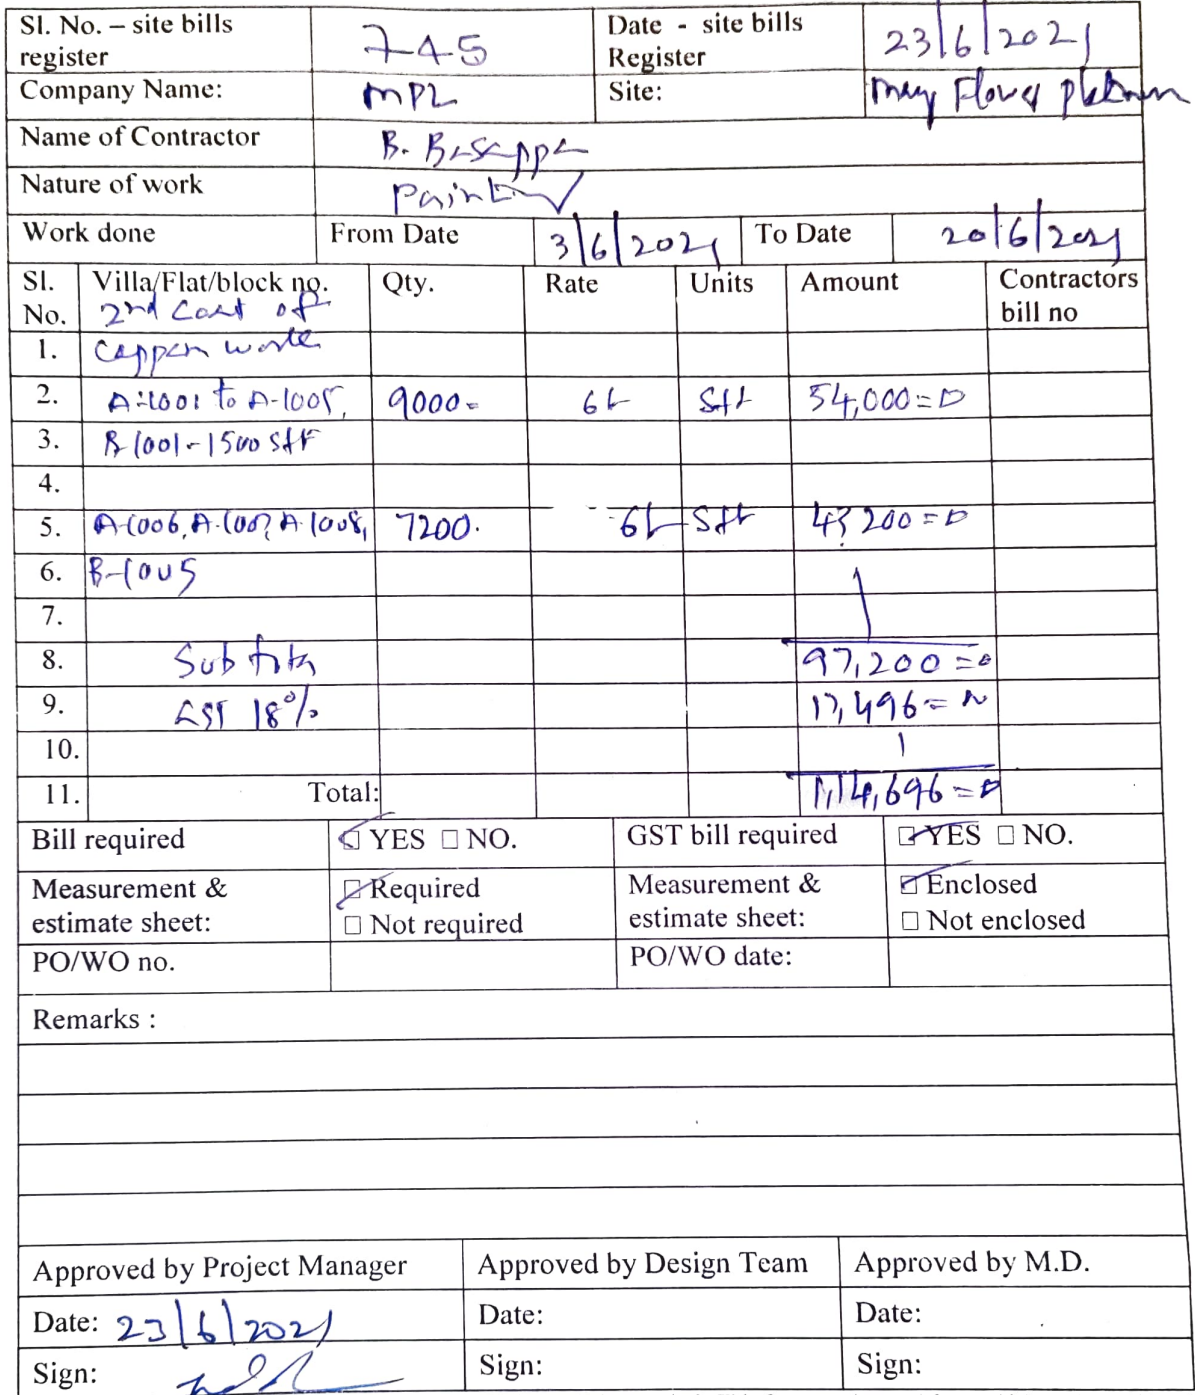 Sl. No. – site bills register 745 Date - site bills Register 23/6/2021
Company Name: MPL Site: may Flower platinum
Name of Contractor B. Basappa
Nature of work Painting
Work done From Date 3/6/2021 To Date 20/6/2021
Sl. No. Villa/Flat/block no. Qty. Rate Units Amount Contractors bill no
2nd Coat of
1. work
2. A-1001 to A-1005, 9000= 6/- Sft 54,000=0
3. B-1001-1500 Sft
4.
5. A-1006, A-1007, A-1008, 7200. 6/- Sft 43,200=0
6. B-1005
7.
8. Sub total 97,200=0
9. GST 18% 17,496=0
10.
11. Total: 1,14,696=0
Bill required ☑ YES ☐ NO. GST bill required ☑ YES ☐ NO.
Measurement & estimate sheet: ☑ Required Measurement & estimate sheet: ☑ Enclosed
☐ Not required ☐ Not enclosed
PO/WO no. PO/WO date:
Remarks :
Approved by Project Manager Approved by Design Team Approved by M.D.
Date: 23/6/2021 Date: Date:
Sign: Sign: Sign: